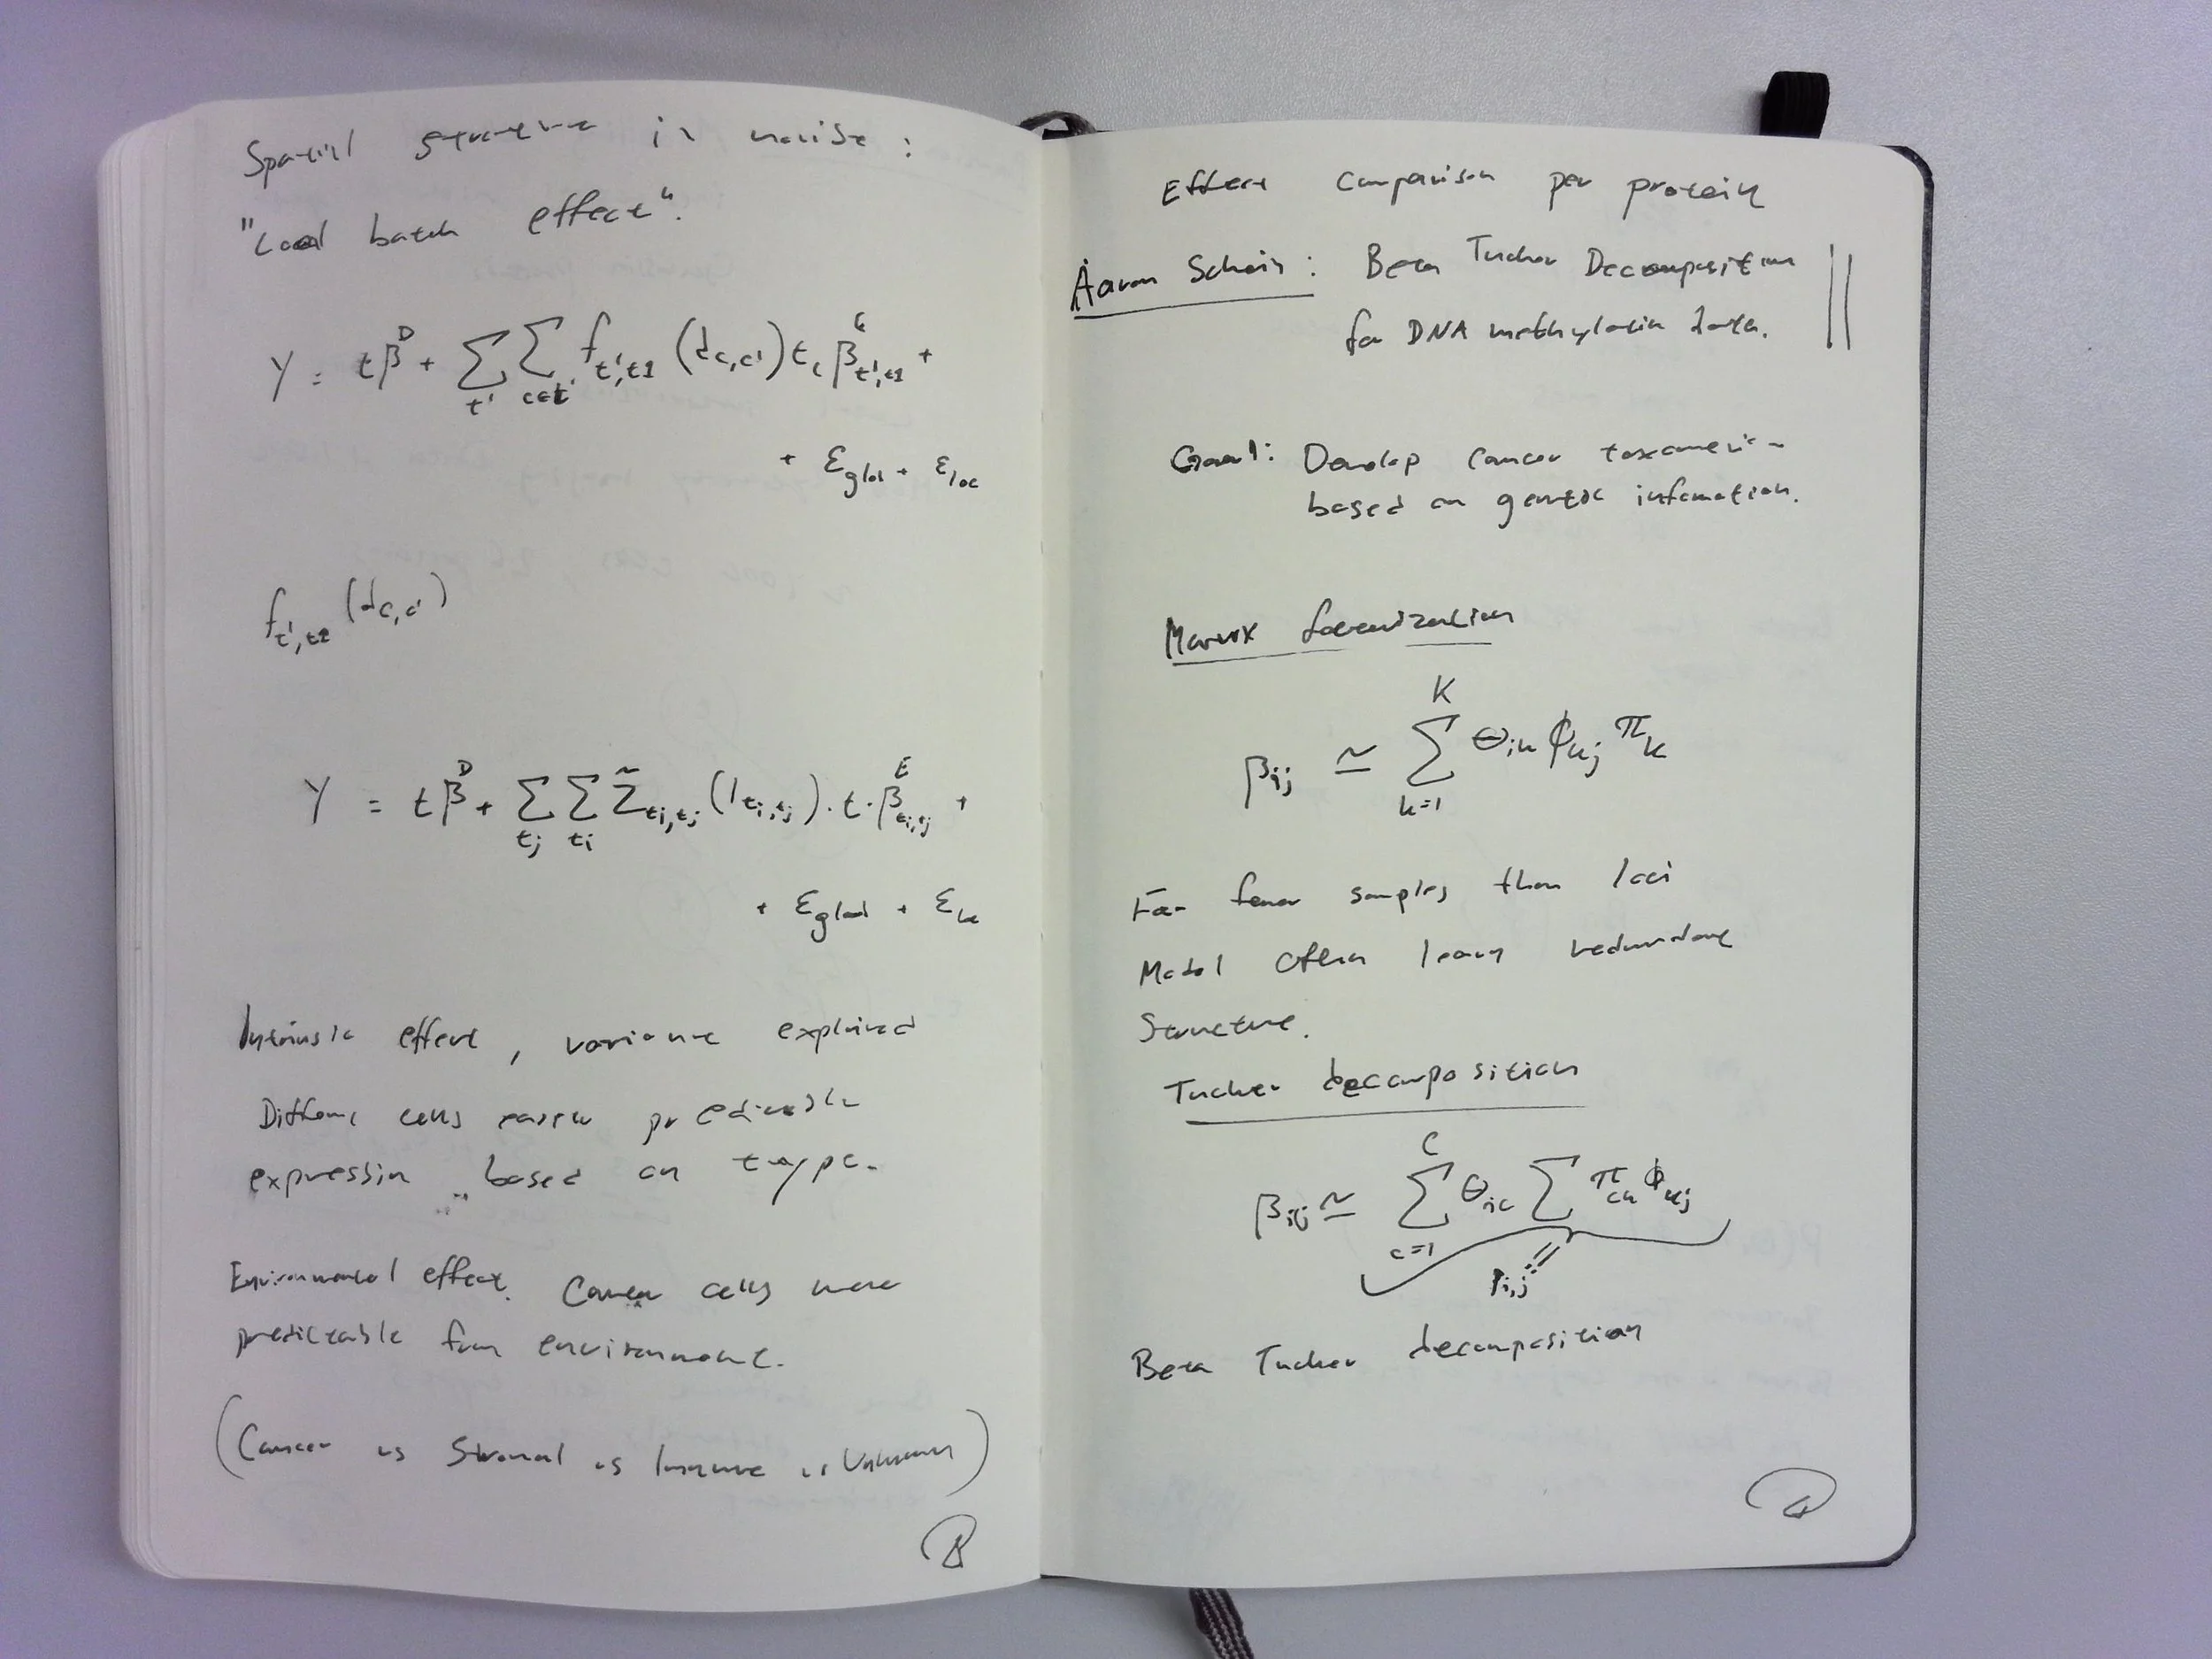 Spatial structure in noise:
"Local batch effect".
Y = tβ^D + Σ_{t'} Σ_{c∈t'} f_{t',t1} (d_{c,c'}) t_c β^E_{t',t1} +
+ ε_{glob} + ε_{loc}
f_{t',t2} (d_{c,c'})
Y = tβ^D + Σ_{tj} Σ_{ti} Z̃_{ti,tj} (l_{ti,tj}) · t · β^E_{ti,tj} +
+ ε_{glob} + ε_{loc}
Intrinsic effect, variance explained
Different cells predictable
expression based on type.
Environmental effect. Cancer cells more
predictable from environment.
(Cancer vs Stromal vs Immune vs Unknown)
Effect comparison per protein
Aaron Schein: Beta Tucker Decomposition
for DNA methylation data.
Goal: Develop cancer
based on genetic information.
Matrix factorization
β_{ij} ≃ Σ_{k=1}^{K} Θ_{ik} ϕ_{kj} π_k
Far fewer samples than loci
Model often learn redundant
Structure.
Tucker decomposition
β_{ij} ≃ Σ_{c=1}^{C} Θ_{ic} Σ π_{ck} ϕ_{kj}
Beta Tucker decomposition